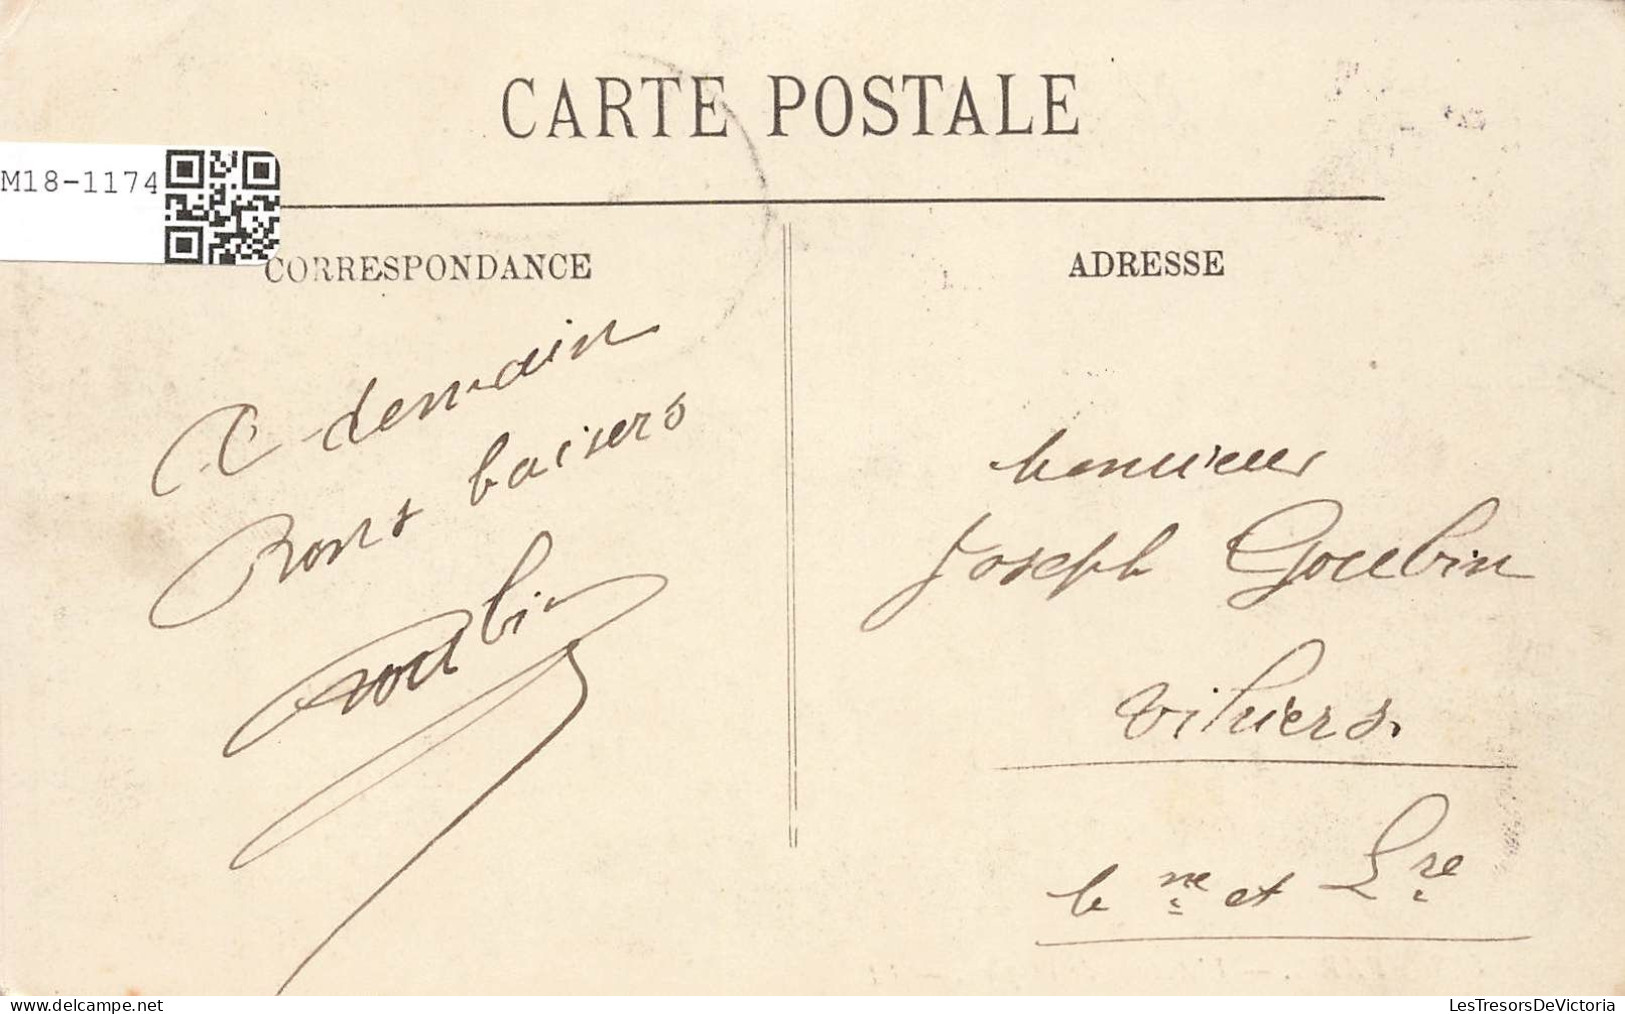 CARTE POSTALE
M18-1174
CORRESPONDANCE
A demain
Bons baisers
Goubin
ADRESSE
Monsieur
Joseph Goubin
Vihiers.
M ne et Lre
LesTresorsDeVictoria